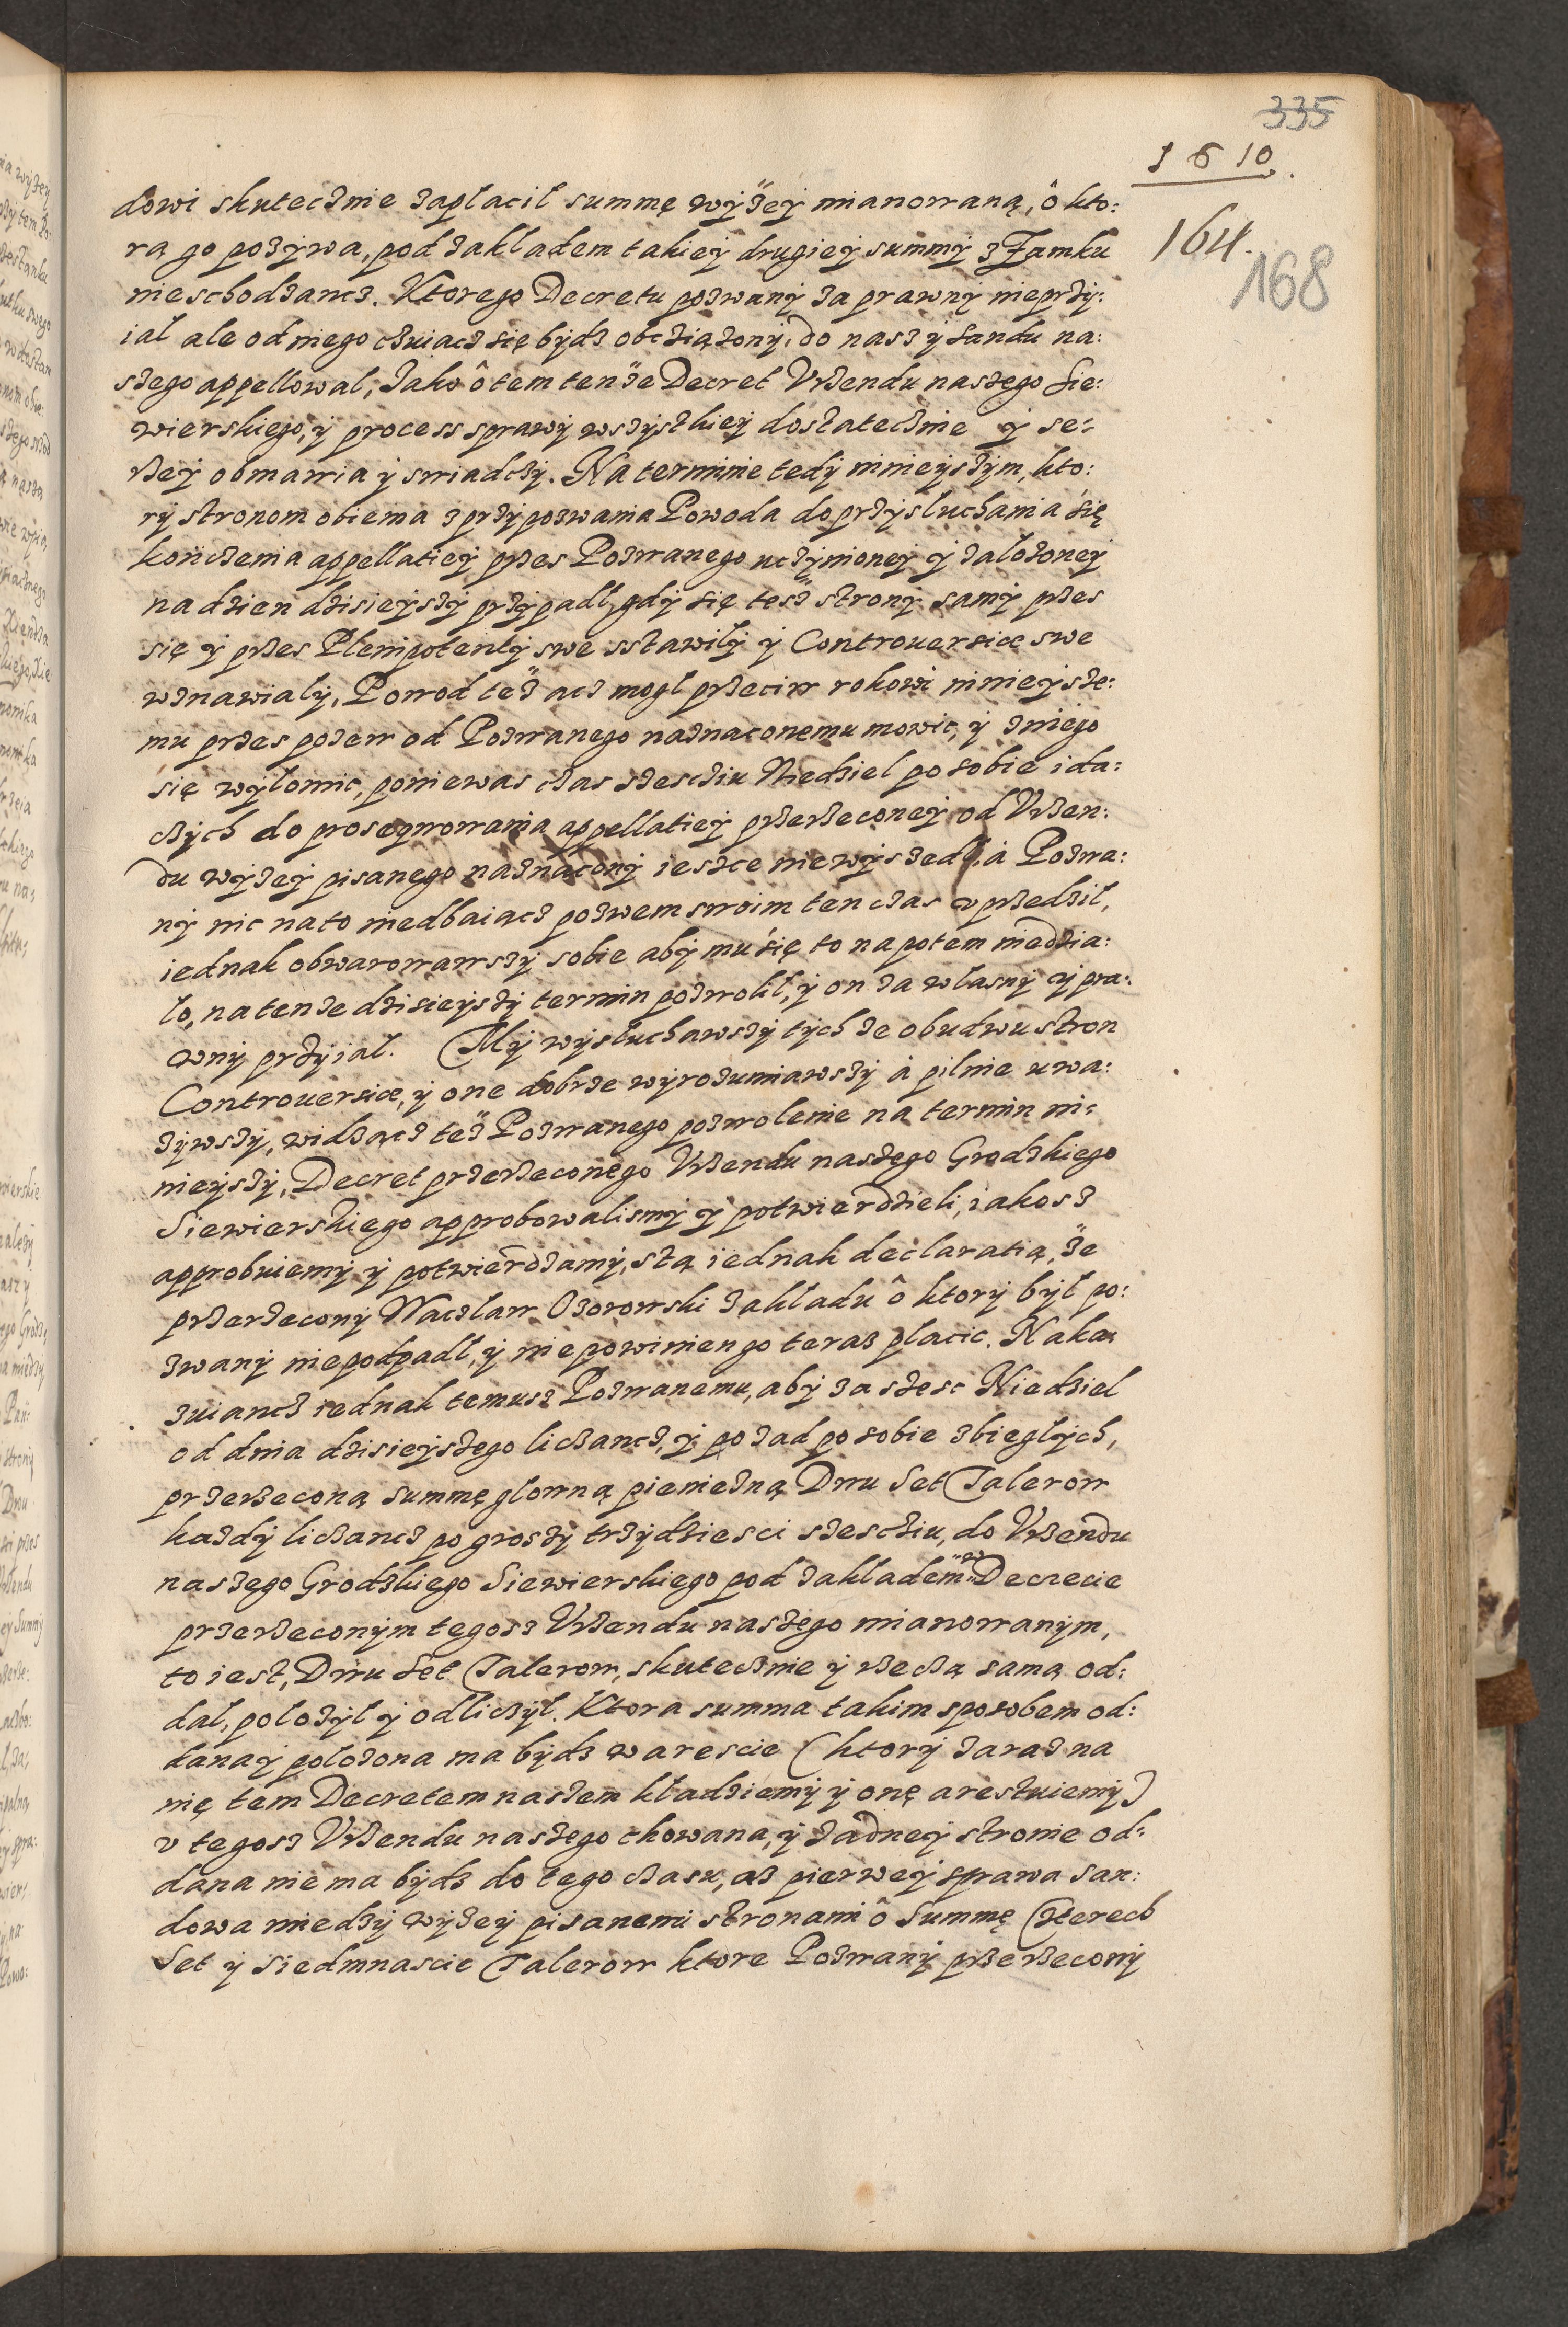 335
1610.
164.
168
dowi skutecznie zapłacił summę wyżey mianowaną, ô kto:
rą go pozywa, pod zakładem takiey drugiey summy z Zamku
nieschodzancz. Ktorego Decretu pozwany za prawny nieprzy:
iał ale od niego czuiącz się bydz obcziązony, do nas y sandu na:
szego appellował, Jako ô tem tenże Decret Vrzendu naszego Sie:
wierskiego, y process sprawy wszystkiey dostatecznie y se:
rzey obmawia y swiadczy. Na terminie tedy ninieyszym, kto:
ry stronom obiema z przypozwania Powoda do przysłuchania się
kończenia appellatiey przes Pozwanego uczynioney y założoney
na dzien dzisieyszy przypadł, gdy się tesz strony samy przes
się y przes Plenipotenty swe sstawiły y Controuersiæ swe
wznawiały, Powod też acz mogł przeciw rokowi ninieysze:
mu przes pozew od Pozwanego naznaconemu mowic, y zniego
się wyłomic, poniewas czas szescziu Niedziel po sobie ida:
czych do prosequowania appellatiey przerzeconey od Vrzen:
du wyzey pisanego naznacony iescze niewyszedł, à Pozwa:
ny nic na to niedbaiącz pozwem swoim ten czas vprzedził,
iednak obwarowawszy sobie aby mu się to napotem niedzia:
ło, na tenze dzisieyszy termin pozwolił, y on za własny y pra:
wny przyiał. My wysłuchawszy tychze obudwu stron
Controuersiæ, y one dobrze wyrozumiawszy à pilnie uwa:
zywszy, widzącz też Pozwanego pozwolenie na termin ni:
nieyszy, Decret przerzeconego Vrzendu naszego Grodzkiego
Siewierskiego approbowalismy y potwierdzieli, iakosz
approbuiemy y potwierdzamy, s tą iednak declaratią, że
przerzecony Wacław Ozorowski zakładu ô ktory był po:
zwany niepodpadł, y nie powinien go teraz płacic. Naka
zuiancz iednak temusz Pozwanemu, aby za szesc Niedziel
od dnia dzisieyszego liczancz, y pozad po sobie zbiegłych,
przerzeconą summę głowną pieniezną Dwu Set Talerow
kazdy liczancz po groszy trzydziesci szescziu, do Vrzendu
naszego Grodzkiego Siewierskiego pod zakładem w Decrecie
przerzeconym tegosz Vrzendu naszego mianowanym,
to iest, Dwu Set Talerow, skutecznie y rzeczą samą od:
dał, położył y odliczył. Ktora summa takim sposobem od:
dana y położona ma bydz w arescie (ktory zaraz na
nię tem Decretem naszem kładziemy y onę arestuiemy)
v tegosz Vrzendu naszego chowana, y żadney stronie od:
dana nie ma bydz do tego czasu, asz pierwey sprawa san:
dowa miedzy wyzey pisanemi stronami ô Summę Czterech
Set y Siedmnascie Talerow ktore Pozwany przerzecony